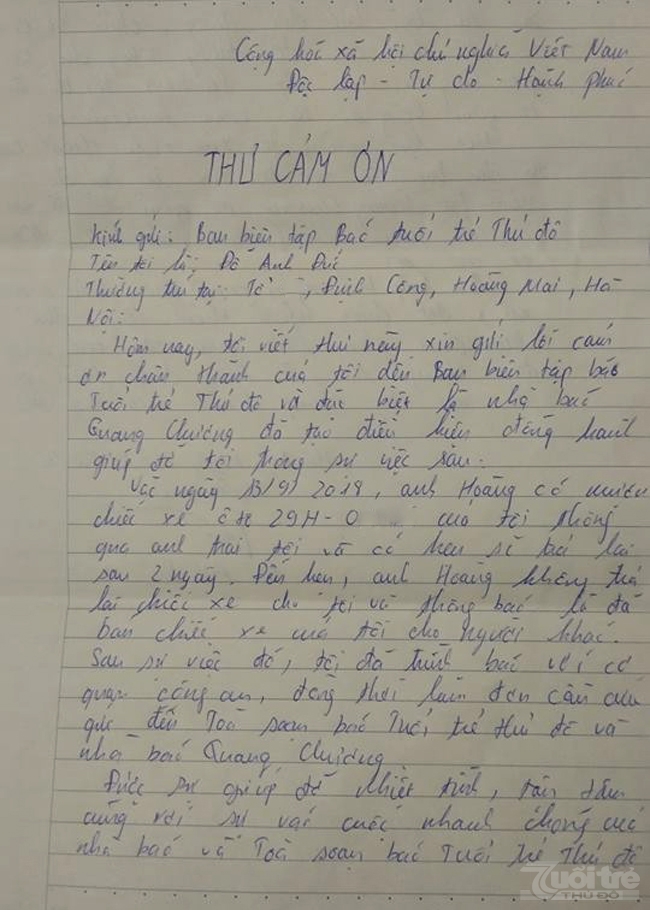 Cộng hoà xã hội chủ nghĩa Việt Nam
Độc lập - Tự do - Hạnh phúc
THƯ CẢM ƠN
Kính gửi: Ban biên tập Báo tuổi trẻ Thủ đô
Tên tôi là: Đỗ Anh Đức
Thường trú tại: Tổ , Định Công, Hoàng Mai, Hà
Nội.
Hôm nay, tôi viết thư này xin gửi lời cảm
ơn chân thành của tôi đến Ban biên tập báo
Tuổi trẻ Thủ đô và đặc biệt là nhà báo
Quang Chương đã tạo điều kiện đồng hành
giúp đỡ tôi trong sự việc sau.
Vào ngày 13/9/2018, anh Hoàng có mượn
chiếc xe ô tô 29H-0 của tôi thông
qua anh trai tôi và có hẹn sẽ trả lại
sau 2 ngày. Đến hẹn, anh Hoàng không trả
lại chiếc xe cho tôi và thông báo là đã
bán chiếc xe của tôi cho người khác.
Sau sự việc đó, tôi đã trình báo với cơ
quan công an, đồng thời làm đơn cầu cứu
gửi đến Toà soạn báo Tuổi trẻ thủ đô và
nhà báo Quang Chương
Được sự giúp đỡ nhiệt tình, tận tâm
cùng với sự vào cuộc nhanh chóng của
nhà báo và Toà soạn báo Tuổi trẻ Thủ đô
Tuổi trẻ
THỦ ĐÔ